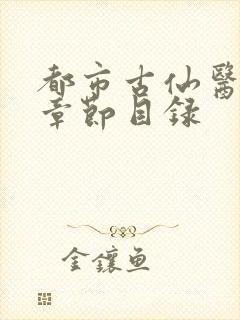 都市古仙醫
章節目録
金鑲魚